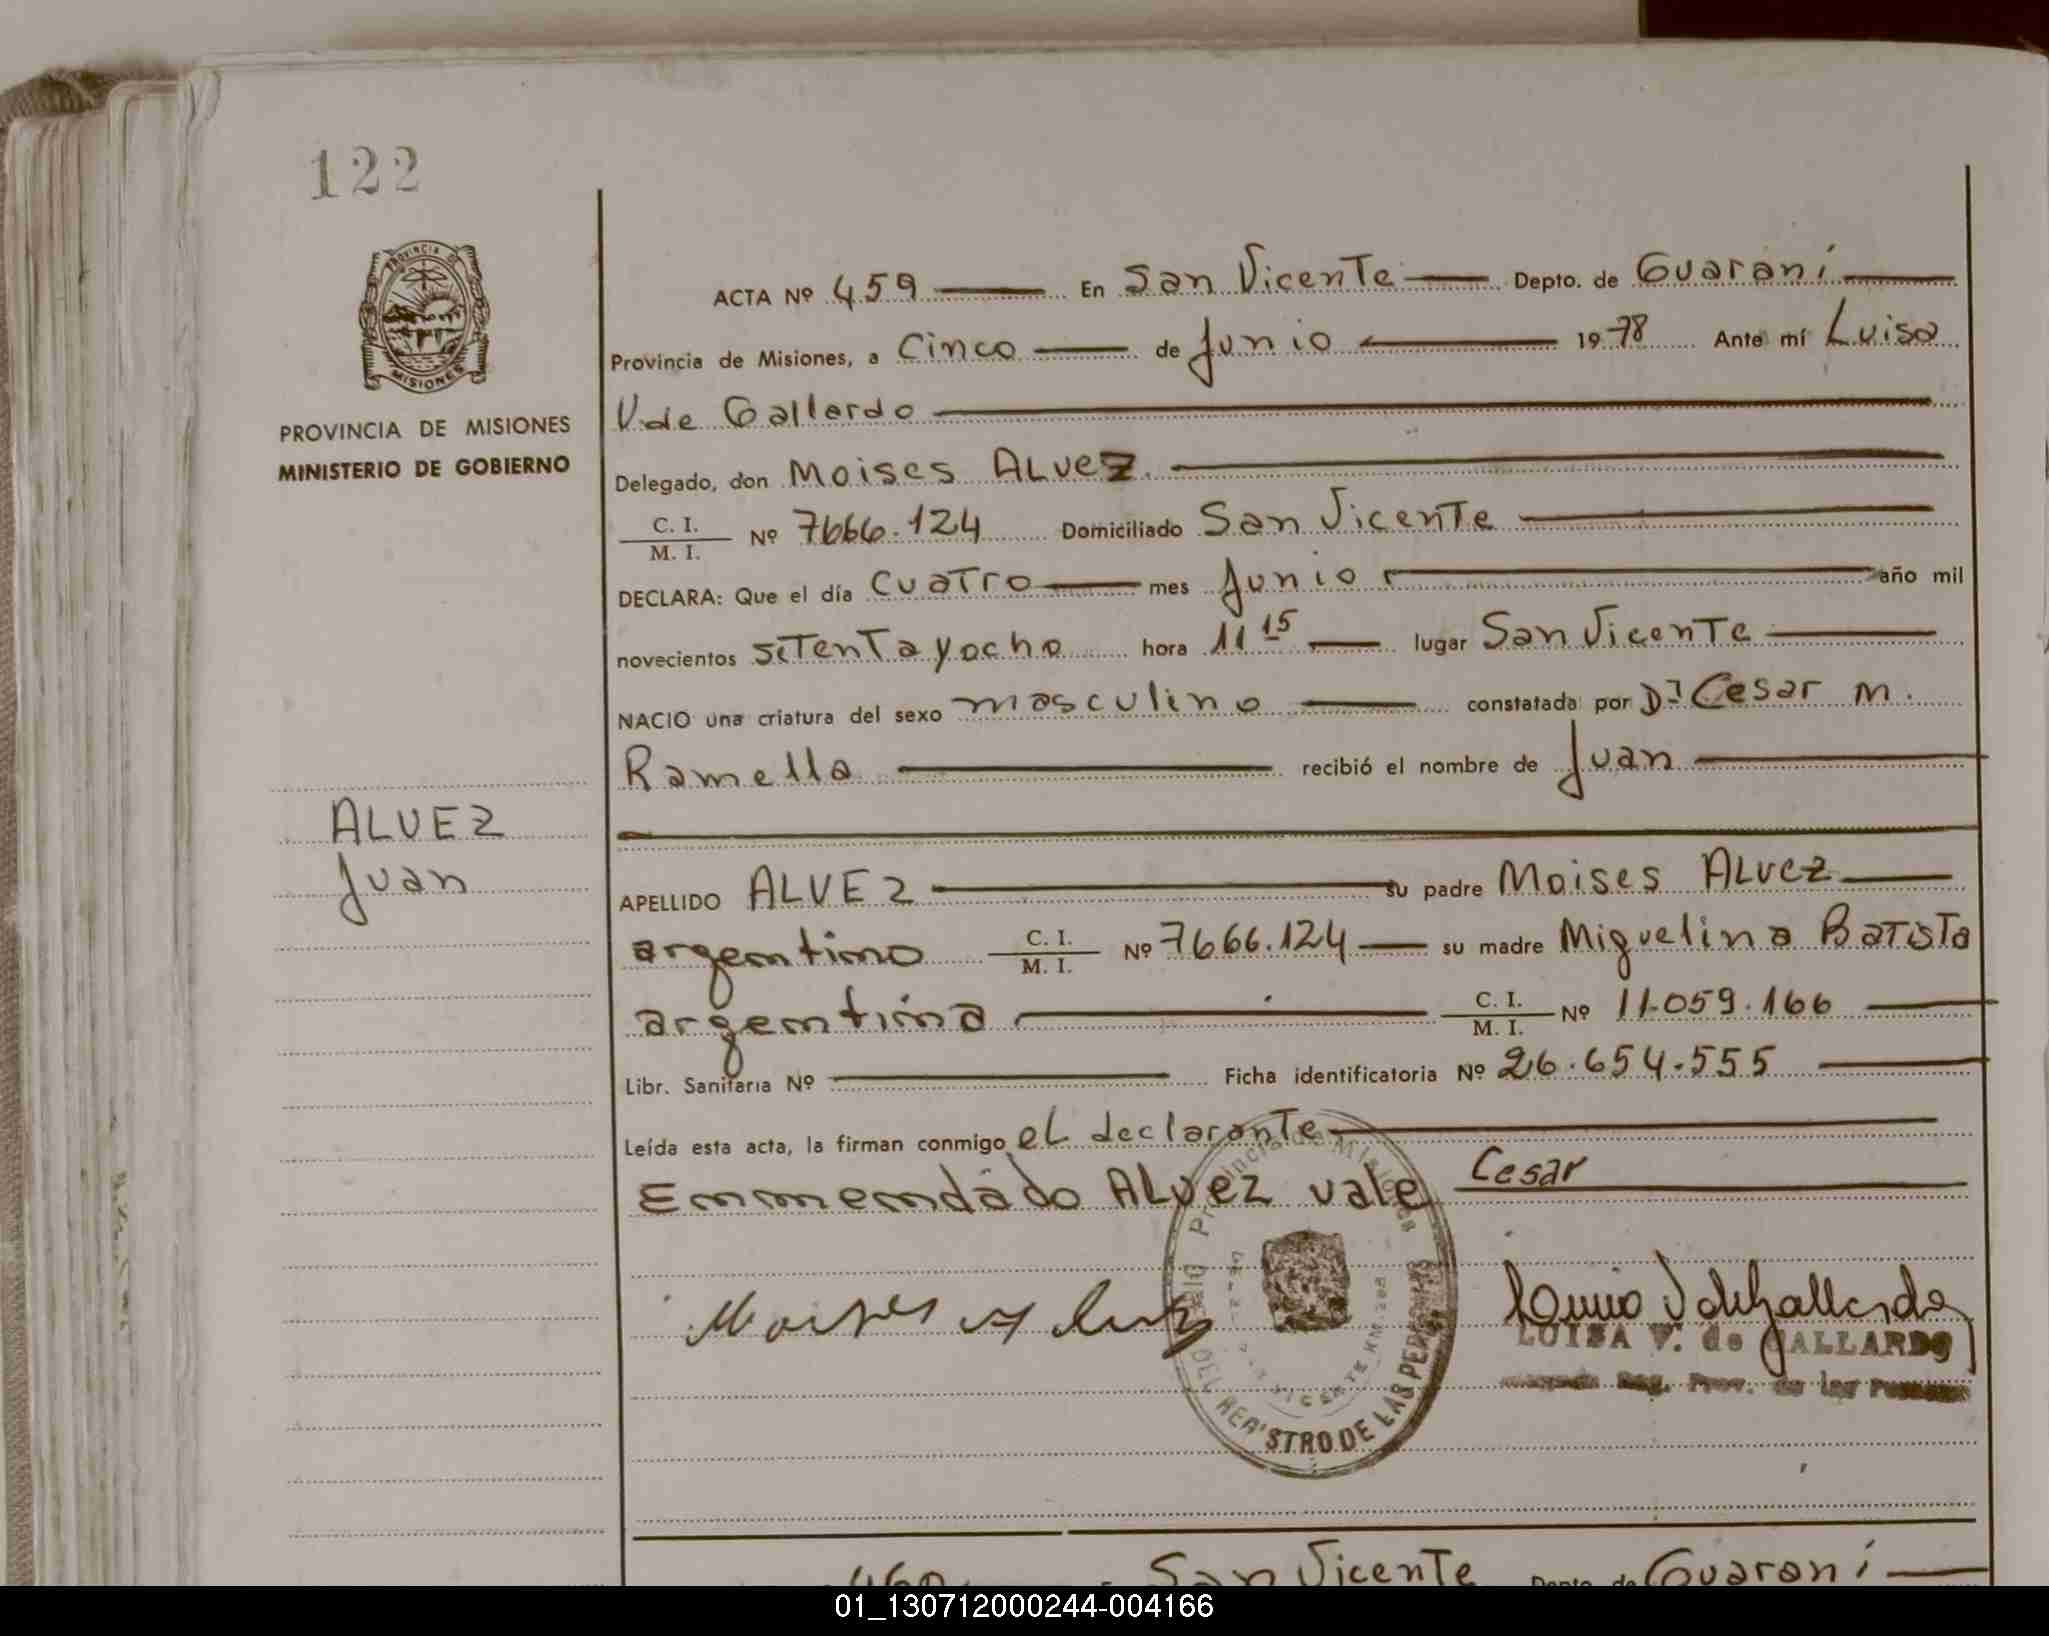 122
PROVINCIA DE
MISIONES
PROVINCIA DE MISIONES
MINISTERIO DE GOBIERNO
ALVEZ
Juan
ACTA Nº 459 En San Vicente Depto. de Guaraní
Provincia de Misiones, a Cinco de Junio 1978 Ante mí Luisa
V. de Gallardo
Delegado, don Moises ALvez
C. I. / M. I. Nº 7666.124 Domiciliado San Vicente
DECLARA: Que el día cuatro mes Junio año mil
novecientos setenta y ocho hora 11 15 lugar San Vicente
NACIO una criatura del sexo masculino constatada por Dr Cesar M.
Ramella recibió el nombre de Juan
APELLIDO ALVEZ su padre Moises ALvez
argentino C. I. / M. I. Nº 7666.124 su madre Miguelina Batista
argentina C. I. / M. I. Nº 11.059.166
Libr. Sanitaria Nº Ficha identificatoria Nº 26.654.555
Leída esta acta, la firman conmigo el declarante
Enmendado ALvez vale Cesar
Moises Alvez
LUISA V. de GALLARDO
Reg. Prov. de las Personas
Provincia de Misiones
REGISTRO DE LAS PERSONAS
460 San Vicente Depto. de Guaraní
01_130712000244-004166